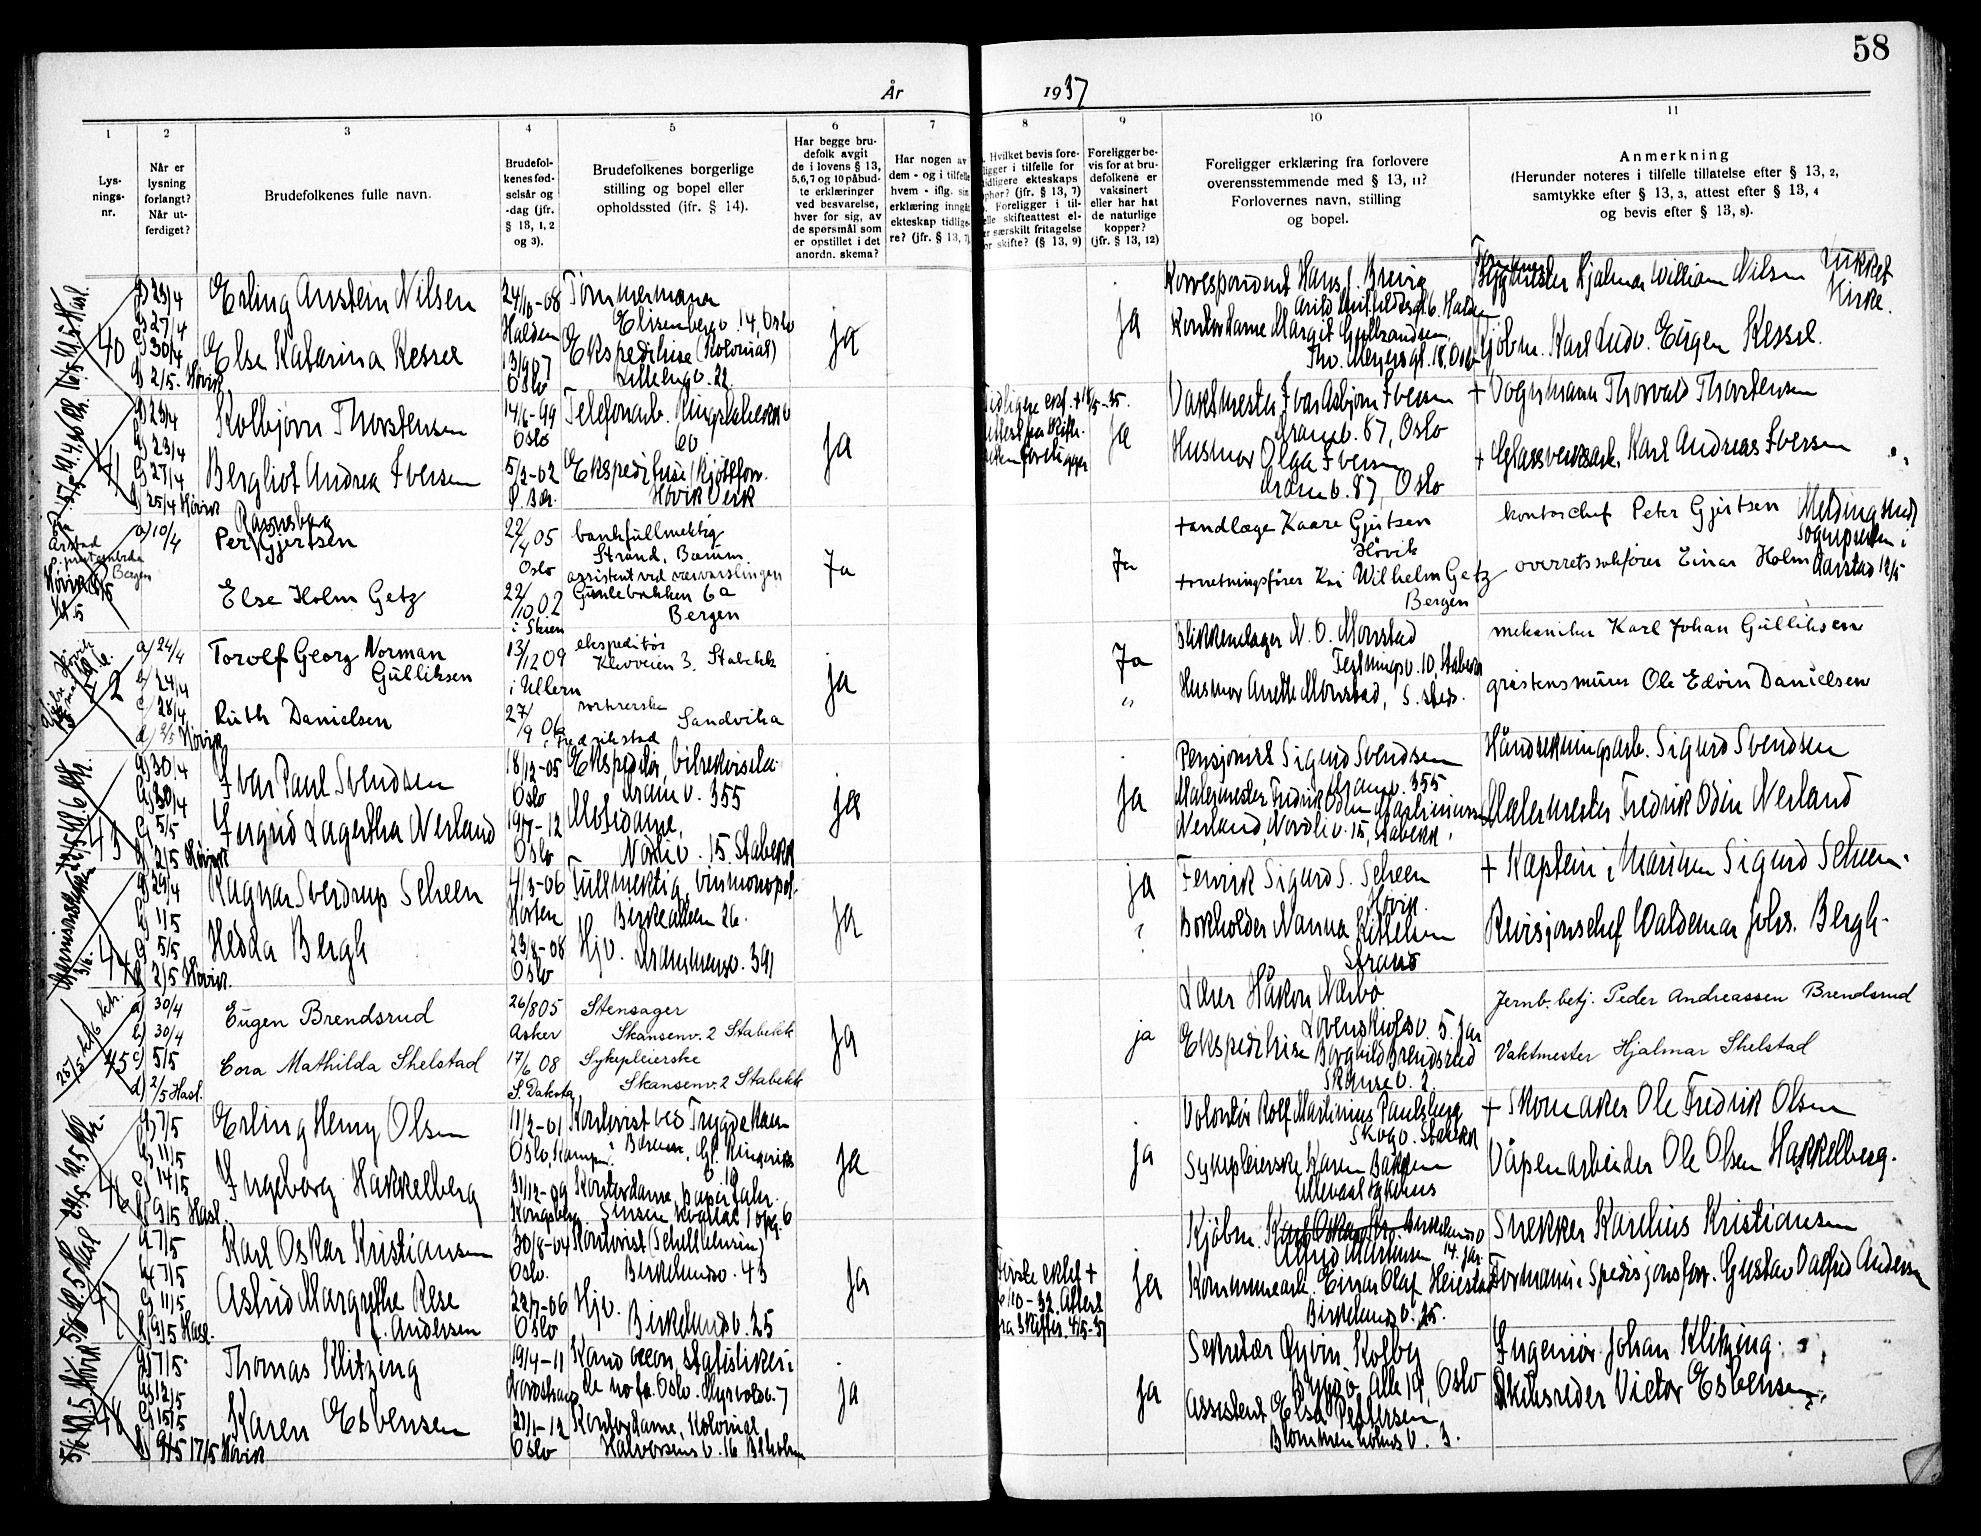 58
År 1937
1 2 3 4 5 6 7 8 9 10 11
Lys-
nings-
nr.
Når er
lysning
forlangt?
Når ut-
ferdiget?
Brudefolkenes fulle navn.
Brudefol-
kenes fød-
selsår og
-dag (jfr.
§ 13, 1, 2
og 3).
Brudefolkenes borgerlige
stilling og bopel eller
opholdssted (jfr. § 14).
Har begge bru-
defolk avgit
de i lovens § 13,
5, 6, 7 og 10 påbud-
te erklæringer
ved besvarelse,
hver for sig, av
de spørsmål som
er opstillet i det
anordn. skema?
Har nogen av
dem - og i tilfelle
hvem - iflg. sin
erklæring inngå
ekteskap tidlige-
re? (jfr. § 13, 7)
Hvilket bevis fore-
ligger i tilfelle for
tidligere ekteskaps
ophør? (jfr. § 13, 7)
Foreligger i til-
felle skifteattest el-
særskilt fritagelse
skifte? (§ 13, 9)
Foreligger be-
vis for at bru-
defolkene er
vaksinert
eller har hat
de naturlige
kopper?
(jfr. § 13, 12)
Foreligger erklæring fra forlovere
overensstemmende med § 13, 11?
Forlovernes navn, stilling
og bopel.
Anmerkning
(Herunder noteres i tilfelle tillatelse efter § 13, 2,
samtykke efter § 13, 3, attest efter § 13, 4
og bevis efter § 13, 8).
40
a) 23/4
b) 27/4
c) 30/4
d) 2/5. Høvik
Erling Anstein Nilsen
24/6-08
Halden
Tømmermann
Elisenbergv. 14, Oslo
Else Katarina Kessel
13/9 07
Oslo
Ekspeditrise (Kolonial)
Lillengv. 22
ja
ja
Korrespondent Hans J. Brevig
Halden
Kontordame Margit Gulbrandsen,
Tho. Meyersgt. 18, Oslo
Byggmester Hjalmar William Nilsen
Kjøbm. Karl Ludv. Eugen Kessel.
Lukket
Kirke.
41
a) 23/4
b) 23/4
c) 27/4
d) 25/4 Høvik
Kolbjørn Thorstensen
14/6-99
Oslo
Telefonarb. Ringstabekkv
60
Bergliot Andrea Iversen
5/3-02
Ø. Bær.
Ekspeditrise i kjøttforr.
Høvik Verk
ja
Tidligere ekt. + 18/5-35.
Attest fra skifte-
retten foreligger
ja
Vaktmester Ivar Asbjørn Iversen
Dramv. 87, Oslo
Husmor Olga Iversen
Dramv. 87, Oslo
+ Vognmann Thorvald Thorstensen
+ Glassverksarb. Karl Andreas Iversen
a) 10/4
Ravnsborg
Per Gjertsen
22/4 05
Oslo
bankfullmektig
Strand, Bærum
Else Holm Getz
22/10 02
i Skien
assistent ved værvarslingen
Gunlebakken 6a
Bergen
Ja
Ja
tandlæge Kaare Gjertsen
Høvik
forretningsfører Kai Wilhelm Getz
Bergen
kontorchef Peter Gjertsen
overretssakfører Einar Holm
Melding til
sogneprest i
Aarstad 10/5
Årstad
Bergen
42
a) 24/4
b) 24/4
c) 28/4
d) 2/5 Høvik
Torolf Georg Norman
Gulliksen
13/12 09
i Ullern
ekspeditør
Kleivveien 3, Stabekk
Ruth Danielsen
27/9 06
i Fredrikstad
sortererske
Sandvika
ja
Ja
"
Blikkenslager N. O. Monstad
Festningsv. 10, Stabekk
Husmor Anette Monstad, S. steds.
mekaniker Karl Johan Gulliksen
gråstensmurer Ole Edvin Danielsen
43
a) 30/4
b) 30/4
c) 5/5
d) 2/5 Høvik
Ivar Paul Svendsen
18/12-05
Oslo
Ekspeditør, bilrekvisita
Dramv. 355
Ingrid Lagertha Nerland
19/7-12
Oslo
Motedame,
Nordliv. 15. Stabekk
ja
ja
Pensjonist Sigurd Svendsen
Dramv. 355
Malermester Fredrik Odin Martinius
Nerland, Nordliv. 15, Stabekk.
Håndverkningsarb. Sigurd Svendsen
Malermester Fredrik Odin Nerland
44
a) 29/4
b) 1/5
c) 5/5
d) 2/5 Høvik.
Ragnar Sverdrup Scheen
4/3-06
Horten
Fullmektig, vinmonopol.
Birkealleen 26.
Hedda Bergh
23/8-08
Oslo
Hjv. Drammensv. 391
ja
ja
Fenrik Sigurd S. Scheen
Høvik.
Bokholder Nanna Kittelsen
Strand
+ Kaptein i Marinen Sigurd Scheen.
Revisjonschef Waldemar Johs. Bergh.
45
a) 30/4
b) 30/4
c) 5/5
d) 2/5 Hasl.
Eugen Brendsrud
26/8 05
Asker
Stensager
Skansenv. 2 Stabekk
Cora Mathilda Skelstad
17/6 08
S. Dakota
Sykepleierske
Skansenv. 2 Stabekk
ja
ja
Lærer Håkon Nærbø
Løvenskiolsv. 5. Jar
Ekspeditrise Borghild Brendsrud
Skansev. 2.
Jernb. betj. Peder Andreassen Brendsrud
Vaktmester Hjalmar Skelstad
46
a) 7/5
b) 11/5
c) 14/5
d) 9/5 Hasl.
Erling Henry Olsen
11/2-01
Oslo, Kampen
Kontorist ved Trygdekassen
i Bærum, Gl. Ringeriksv.
Ingeborg Hakkelberg
31/12-09
Kongsberg
Kontordame, papirfabr.
Jensen Kvartal 1 opg. 6
ja
ja
Volontør Rolf Martinius Paulsberg
Skogv. Stabekk
Sykepleierske Karen Bakken
Ullevaal sykehus
+ Skomaker Ole Fredrik Olsen
Våpenarbeider Ole Olsen Hakkelberg.
47
a) 7/5
b) 7/5
c) 11/5
d) 9/5 Hasl.
Karl Oskar Kristiansen
30/8-04
Oslo.
Kontorist (Schell Bensin)
Birkelundv. 43
Astrid Margrethe Rese
f. Andersen
22/7-06
Oslo
Hjv.
Birkelundv. 25
ja
Første ektef. +
6/10-32. Attest
fra Skifter. 4/5-37
ja
Kjøbm. Birkelundv
Alfrid Martinsen 14. Jar.
Kommunearb. Einar Olaf Heiestad
Birkelundv. 25.
Snekker Karelius Kristiansen
Formann i Spedisjonsforr. Gustav Dalfred Andersen
48
a) 7/5
b) 12/5
c) 15/5
d) 9/5 17/5 Høvik
Thomas Klitzing
19/4-11
Nordstrand
Kand. oecon, statistiker i
De nofa. Oslo. Myrvoldv. 7
Karen Esbensen
23/1-12
Oslo
Kontordame, Kolonial
Halvorsens v. 16 Blholm
ja
ja
Sekretær Øyvin Kolby
Bygdø Alle 19, Oslo
Assistent Elsa Pettersen
Blommenholmsv. 3.
Ingeniør Johan Klitzing.
Skibsreder Victor Esbensen.